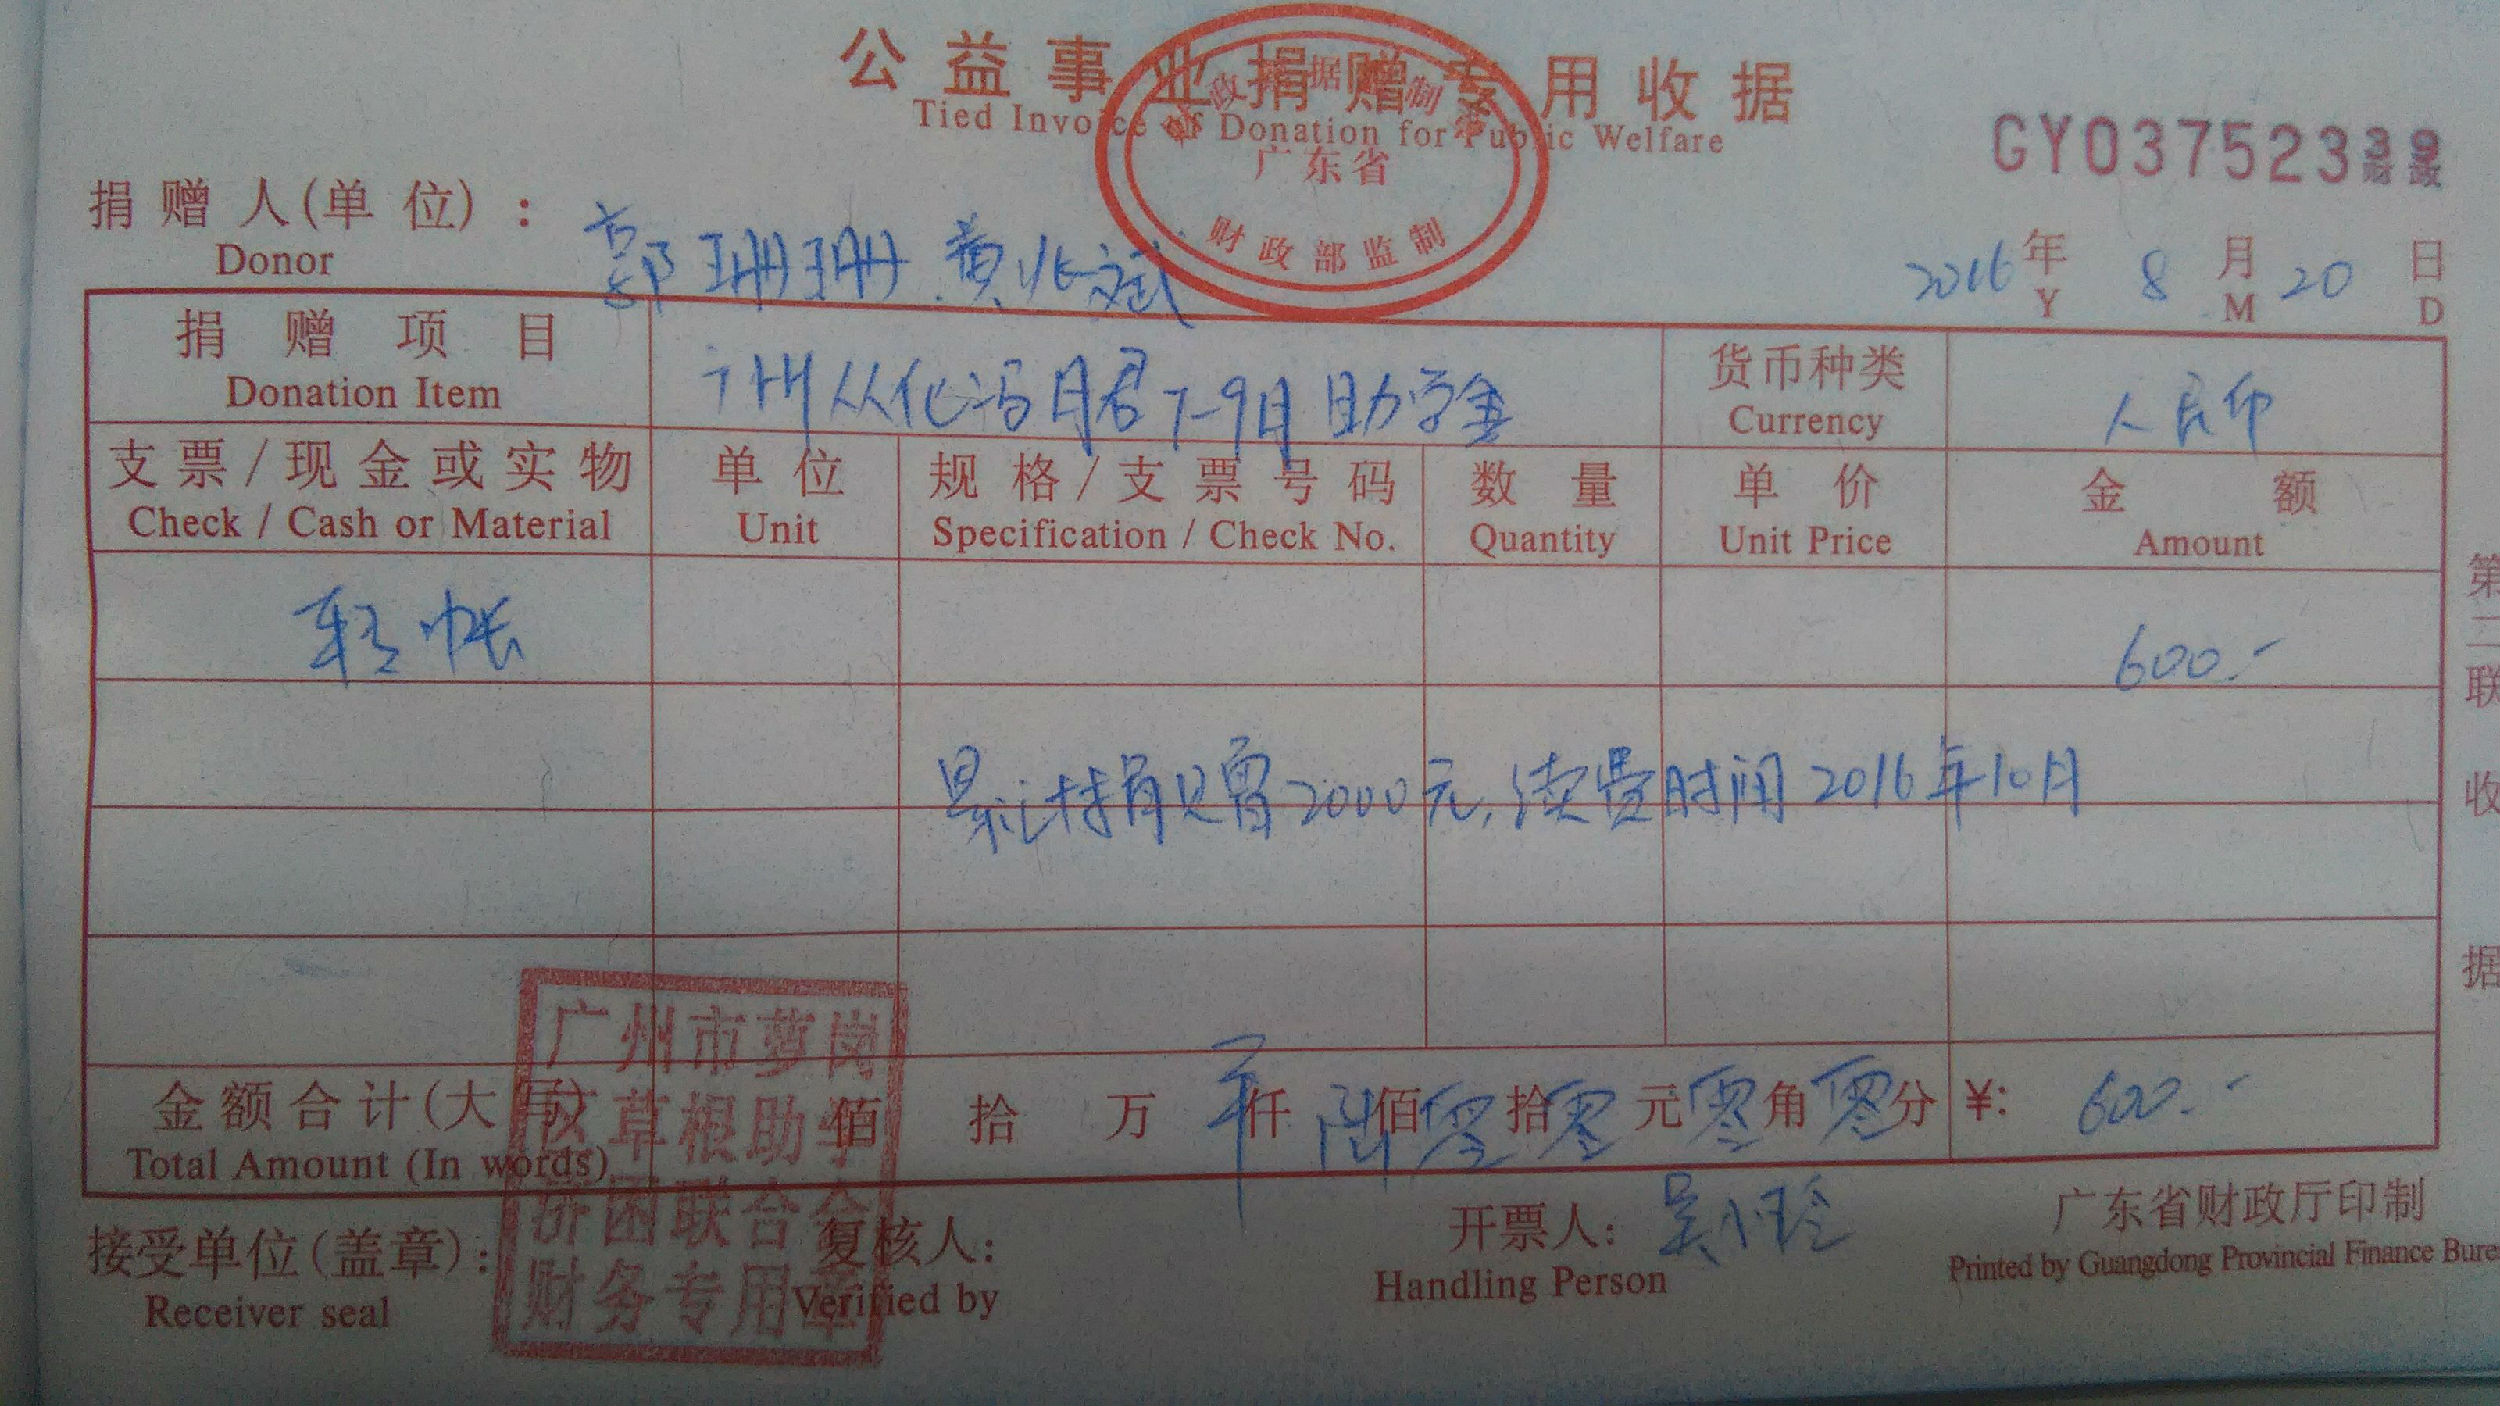 公益事业捐赠专用收据
Tied Invoice of Donation for Public Welfare
广东省
财政部监制
GY03752339
捐赠人(单位)：郭珊珊 黄兆斌
Donor
2016年8月20日
Y M D
捐赠项目 广州从化冯月君7-9月助学金 货币种类 人民币
Donation Item Currency
支票/现金或实物 单位 规格/支票号码 数量 单价 金额
Check / Cash or Material Unit Specification / Check No. Quantity Unit Price Amount
转帐 600.-
累计捐赠2000元,续费时间2016年10月
金额合计(大写) 佰 拾 万 仟陆佰零拾零元零角零分 ¥: 600.-
Total Amount (In words)
接受单位(盖章)： 复核人: 开票人: 吴 广东省财政厅印制
Receiver seal Verified by Handling Person Printed by Guangdong Provincial Finance Bure
广州市萝岗
区草根助学
济困联合会
财务专用章
第二联 收据